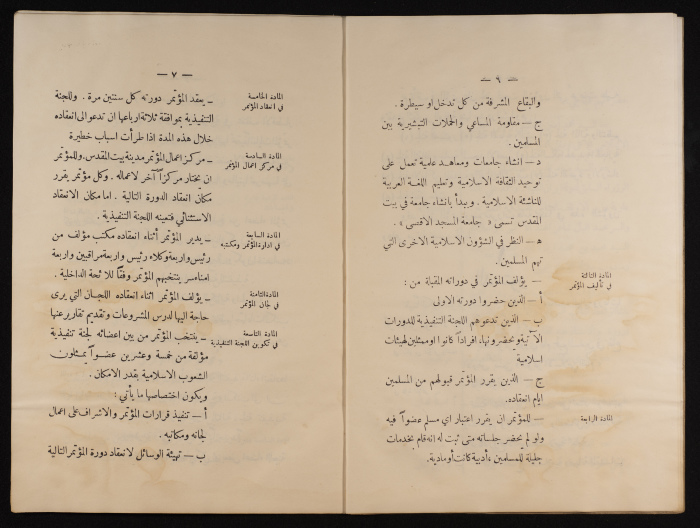 — ٦ —
والبقاع المشرفة من كل تدخل او سيطرة .
ج — مقاومة المساعي والحملات التبشيرية بين
المسلمين .
د — انشاء جامعات ومعاهد علمية تعمل على
توحيد الثقافة الاسلامية وتعليم اللغة العربية
للناشئة الاسلامية . ويبدأ بانشاء جامعة في بيت
المقدس تسمى « جامعة المسجد الاقصى » .
ه — النظر في الشؤون الاسلامية الاخرى التي
تهم المسلمين .
المادة الثالثة
في تأليف المؤتمر
— يؤلف المؤتمر في دوراته المقبلة من :
أ — الذين حضروا دورته الاولى
ب — الذين تدعوهم اللجنة التنفيذية للدورات
الآتية ويحضرونها، افراداً كانوا او ممثلين لهيئات
اسلامية
ج — الذين يقرر المؤتمر قبولهم من المسلمين
ايام انعقاده.
المادة الرابعة
— للمؤتمر ان يقرر اعتبار اي مسلم عضواً فيه
ولو لم يحضر جلساته متى ثبت له انه قام بخدمات
جليلة للمسلمين ،أدبية كانت أو مادية.
— ٧ —
المادة الخامسة
في انعقاد المؤتمر
ـ يعقد المؤتمر دورته كل سنتين مرة . وللجنة
التنفيذية بموافقة ثلاثة ارباعها ان تدعو الى انعقاده
خلال هذه المدة اذا طرأت اسباب خطيرة
المادة السادسة
في مركز اعمال المؤتمر
ـ مركز اعمال المؤتمر مدينة بيت المقدس. وللمؤتمر
ان يختار مركزاً آخر لاعماله . وكل مؤتمر يقرر
مكان انعقاد الدورة التالية . اما مكان الانعقاد
الاستثنائي فتعينه اللجنة التنفيذية .
المادة السابعة
في ادارة المؤتمر ومكتبه
ـ يدير المؤتمر أثناء انعقاده مكتب مؤلف من
رئيس واربعة وكلاء رئيس واربعة مراقبين واربعة
امناء سر ينتخبهم المؤتمر وفقاً للائحة الداخلية .
المادة الثامنة
في لجان المؤتمر
ـ يؤلف المؤتمر اثناء انعقاده اللجان التي يرى
حاجة اليها لدرس المشروعات وتقديم تقاريرعنها
المادة التاسعة
في تكوين اللجنة التنفيذية
ـ ينتخب المؤتمر من بين اعضائه لجنة تنفيذية
مؤلفة من خمسة وعشرين عضواً يمثلون
الشعوب الاسلامية بقدر الامكان .
ويكون اختصاصها ما يأتي :
أ — تنفيذ قرارات المؤتمر والاشراف على اعمال
لجانه ومكاتبه .
ب — تهيئة الوسائل لانعقاد دورة المؤتمر التالية